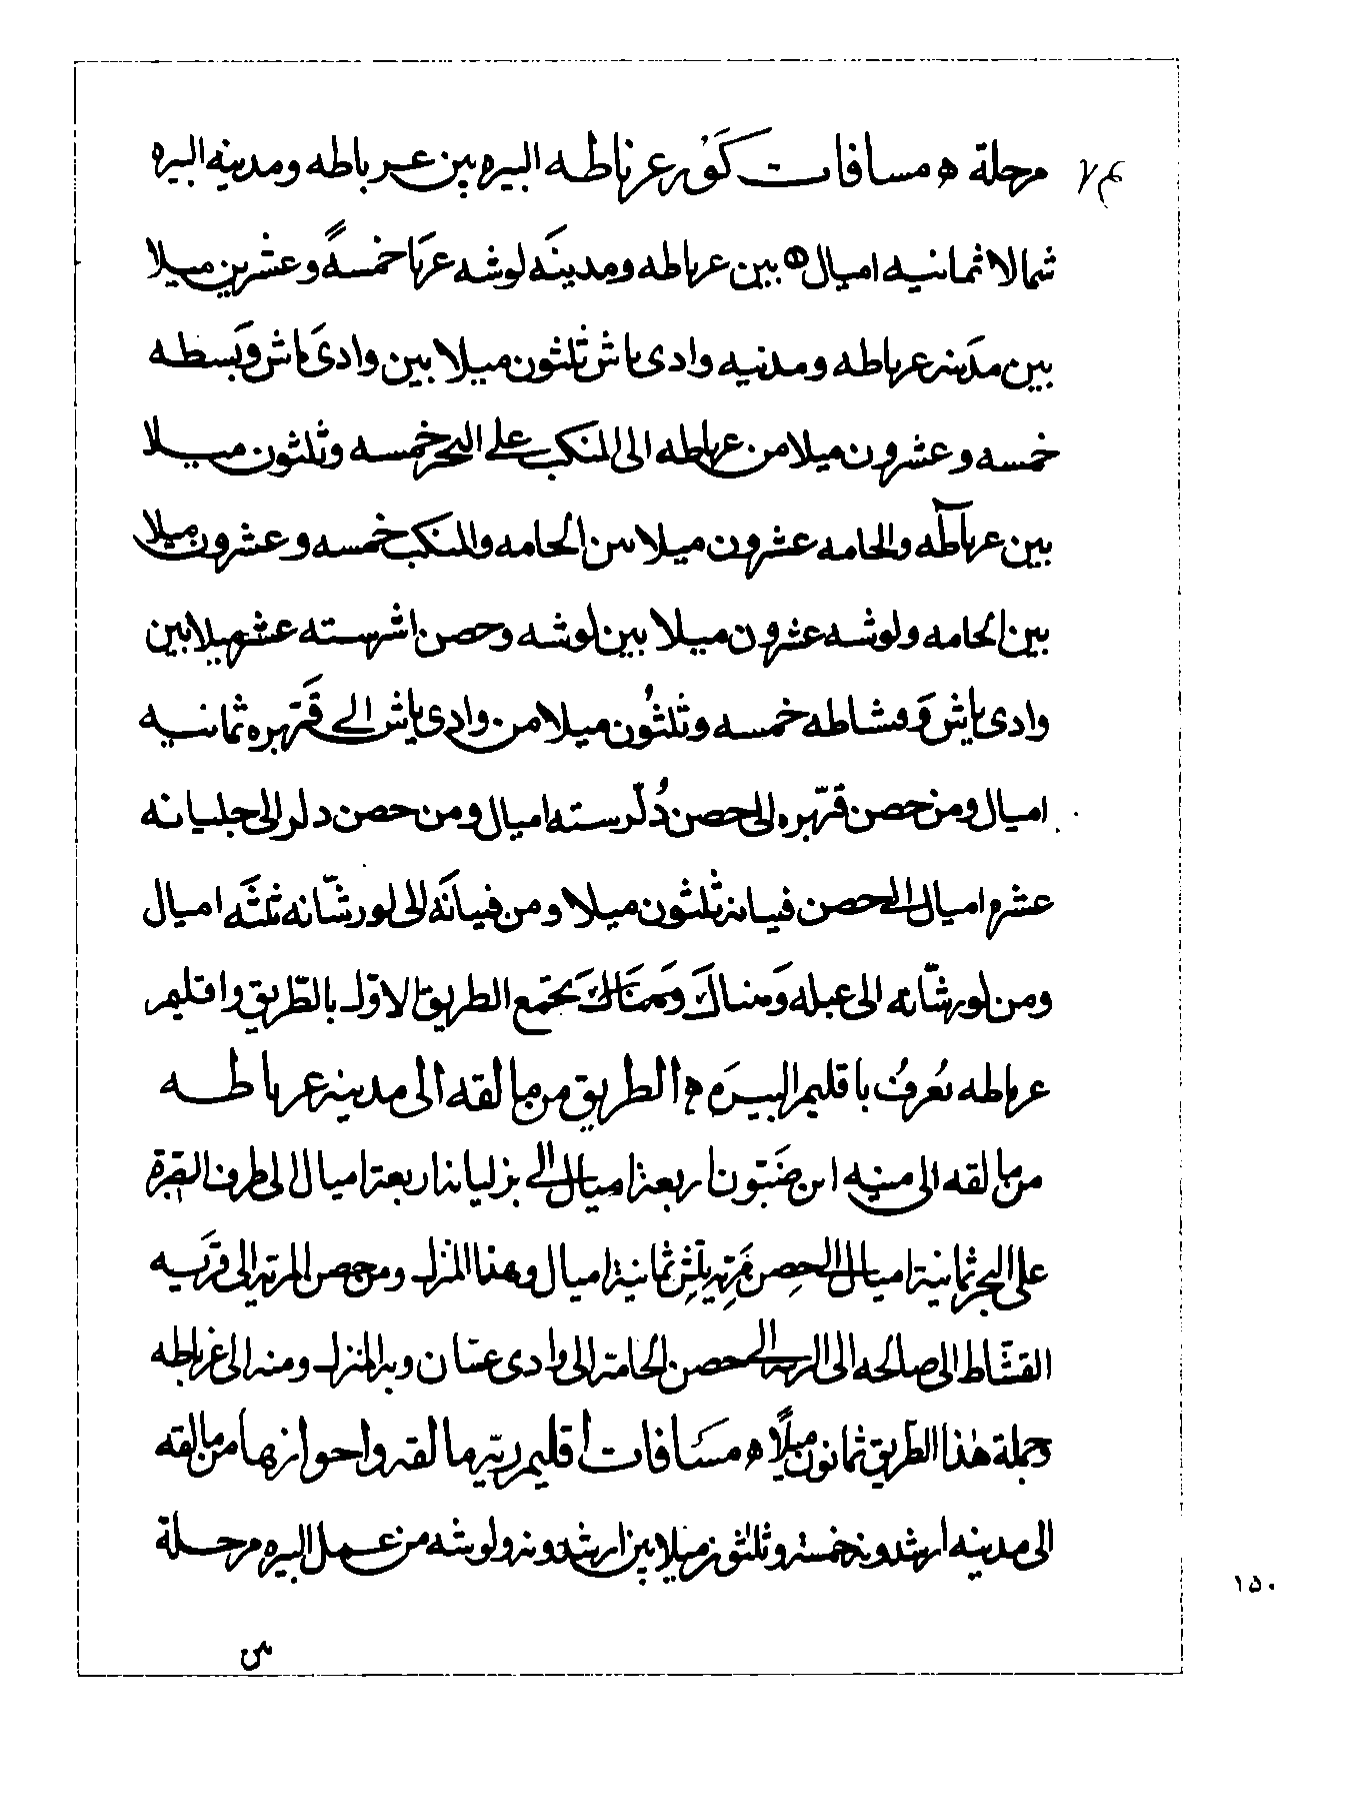 مرحلة ه مسافات كور غرناطه البيره بين غرباطه ومدينه البيره
شمالا ثمانيه اميال ه بين غرناطه ومدينه لوشه غربا خمسةً وعشرين ميلا
بين مدينه غرناطه ومدنيه وادى ياش ثلثون ميلا بين وادى ياش وبسطه
خمسه وعشرون ميلا من غرناطه الى المنكب على البحر خمسه وثلثون ميلا
بين غرناطه والحامه عشرون ميلا بين الحامه والمنكب خمسه وعشرون ميلا
بين الحامه ولوشه عشرون ميلا بين لوشه وحصن اشر سته عشر ميلا بين
وادى ياش ومشاطه خمسه وثلثون ميلا من وادى ياش الى قتهره ثمانيه
اميال ومن حصن قتهره الى حصن دُلّر سته اميال ومن حصن دلر الى جليانه
عشره اميال الى حصن فييانه ثلثون ميلا ومن فييانه الى لورشّانه ثلثه اميال
ومن لورشّانه الى عبله وهناك يجتمع الطريق الاوّل بالطّريق واقليم
غرناطه يُعرف باقليم البيره ه الطريق من مالقه الى مدينه غرناطه
من مالقه الى منيه ابن ضبتون اربعة اميال الى بزليانه اربعة اميال الى طرف القبرة
على البحر ثمانية اميال الى حصن مرتيه بلش ثمانية اميال وهذا المنزل ومن حصن المرتيه الى قريه
القشّاط الى صالحه الى الربه الى حصن الحامة الى وادى غسّان وبه المنزل ومنه الى غرناطه
وجملة هٰذا الطريق ثمانون ميلًا ه مسافات اقليم ريّه مالقه واحوازها من مالقه
الى مدينه ارشدونه خمسة وثلثون ميلا بين ارشدونه ولوشه من عمل البيره مرحلة
من
١٥٠